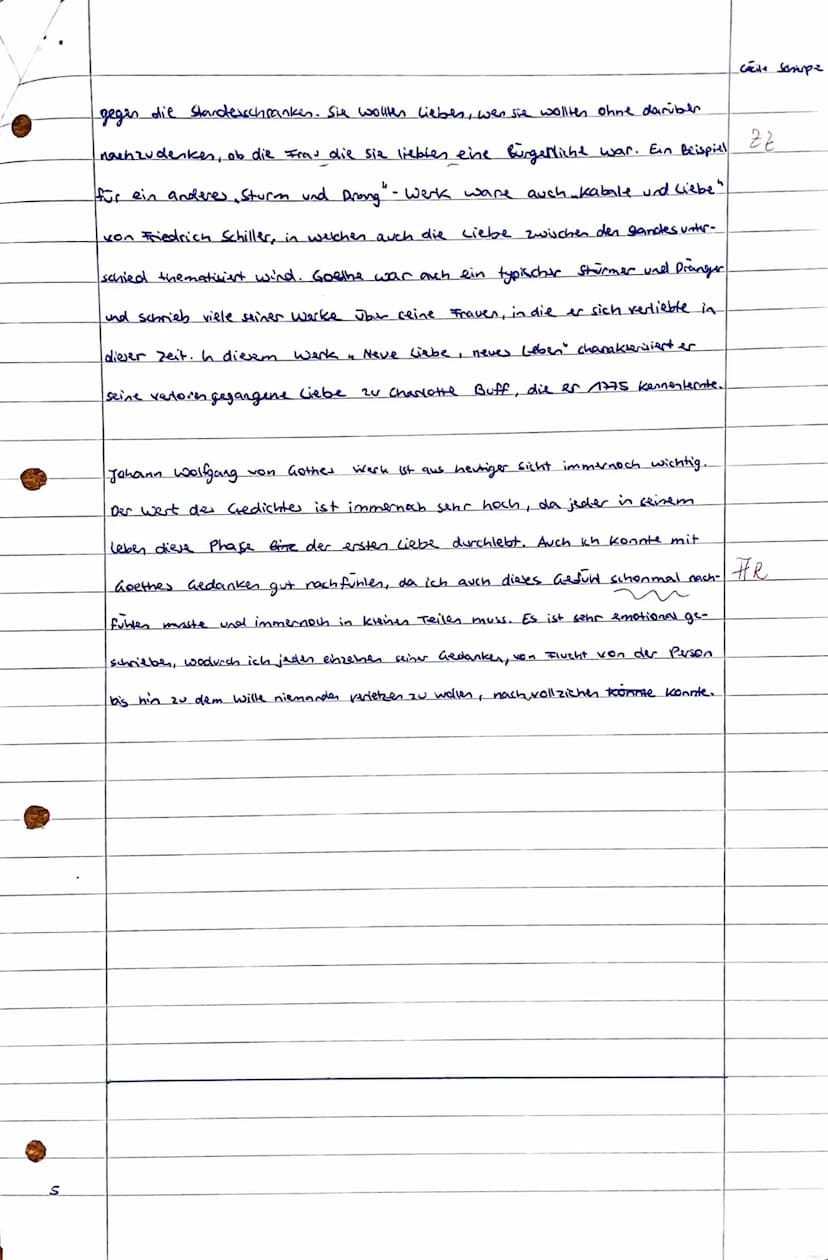 gegen die Standesschranken. Sie wollten lieben, wen sie wollten ohne darüber
nachzudenken, ob die Frau die sie liebten eine Bürgerliche war. Ein Beispiel
ZZ
für ein anderes „Sturm und Drang"-Werk wäre auch „Kabale und Liebe"
von Friedrich Schiller, in welchen auch die Liebe zwischen den Standesunter-
schied thematisiert wird. Goethe war auch ein typischer Stürmer und Dränger
und schrieb viele seiner Werke über seine Frauen, in die er sich verliebte in
dieser Zeit. In diesem Werk „Neue Liebe, neues Leben" charakterisiert er
seine verloren gegangene Liebe zu Charlotte Buff, die er 1775 kennenlernte.
Johann Wolfgang von Gothes Werk ist aus heutiger Sicht immernoch wichtig.
Der Wert des Gedichtes ist immernoch sehr hoch, da jeder in seinem
Leben diese Phase der ersten Liebe durchlebt. Auch ich konnte mit
Goethes Gedanken gut nachfühlen, da ich auch dieses Gefühl schonmal nach-
fühlen musste und immernoch in kleinen Teilen muss. Es ist sehr emotional ge-
schrieben, wodurch ich jeden einzelnen seiner Gedanken, von Flucht von der Person
bis hin zu dem Wille niemanden verletzen zu wollen, nachvollziehen könnte konnte.
5